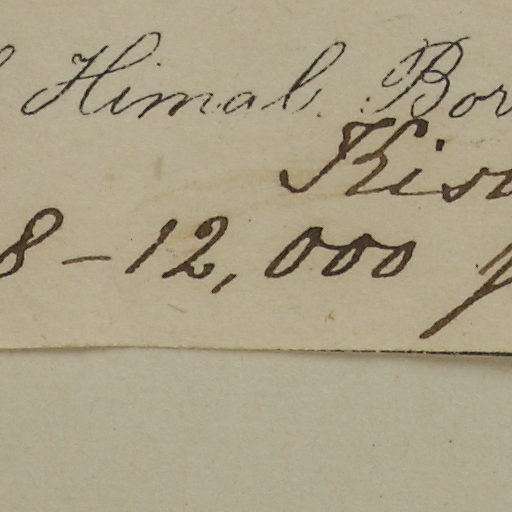 Himal. Bor
Kiso
8-12,000 f